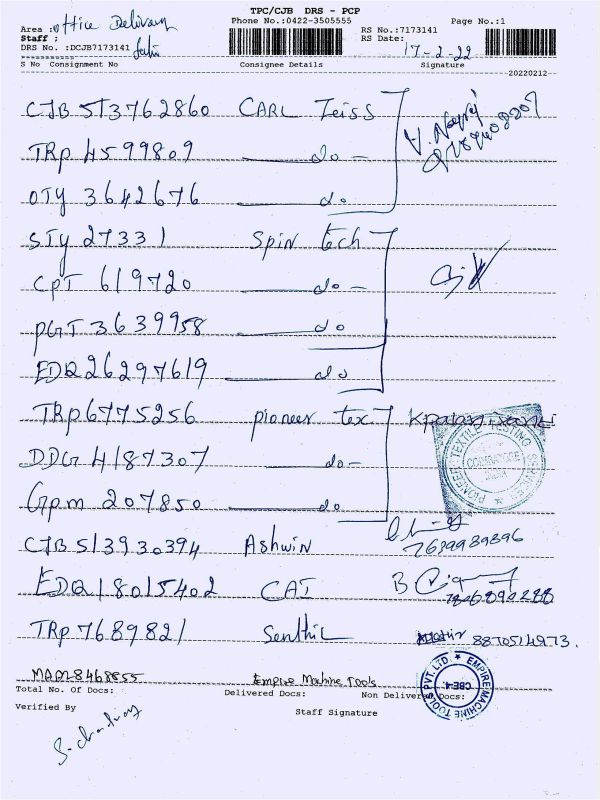 TPC/CJB DRS - PCP
Area : office Delivery Phone No.:0422-3505555 Page No.:1
Staff : RS No.:7173141
DRS No. :DCJB7173141 RS Date: 17-2-22
S No Consignment No Consignee Details Signature
20220212
CJB 513762860 CARL Zeiss
TRP 4599809 do
OTY 3642676 do
STY 27331 Spin tech
CPT 619720 do
PGT 3639958 do
EDQ 26297619 do
TRP 6775256 pioneer tex
PIONEER TEXTILE TESTING SERVICES COIMBATORE
DDG 4187307 do
Gpm 207850 do
CJB 513930394 Ashwin 7639989896
EDQ 18015402 CAI B
TRP 7689821 Senthil 8870514973.
Empire Machine Tools
EMPIRE MACHINE TOOLS PVT LTD CBE-4.
Total No. Of Docs: Delivered Docs: Non Delivered Docs:
Verified By Staff Signature